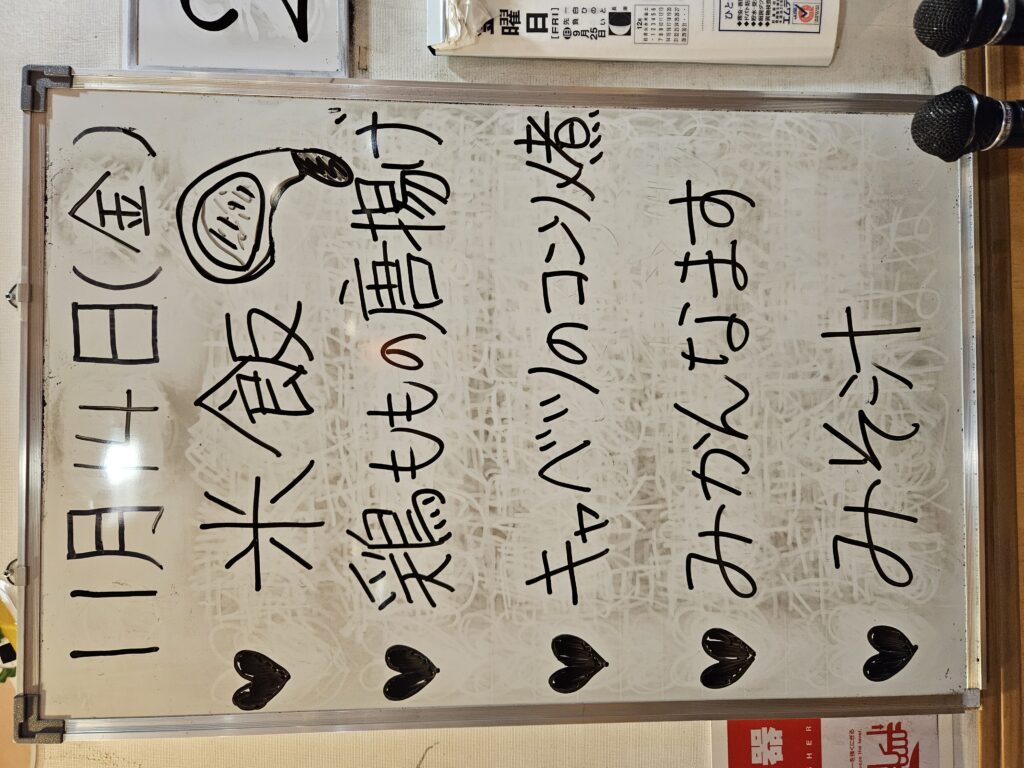 11月14日(金)
米飯
鶏ももの唐揚げ
キャベツのコンソメ煮
みかんなます
みそ汁
曜
日
[FRI]
先負
旧9月25日
12月
器